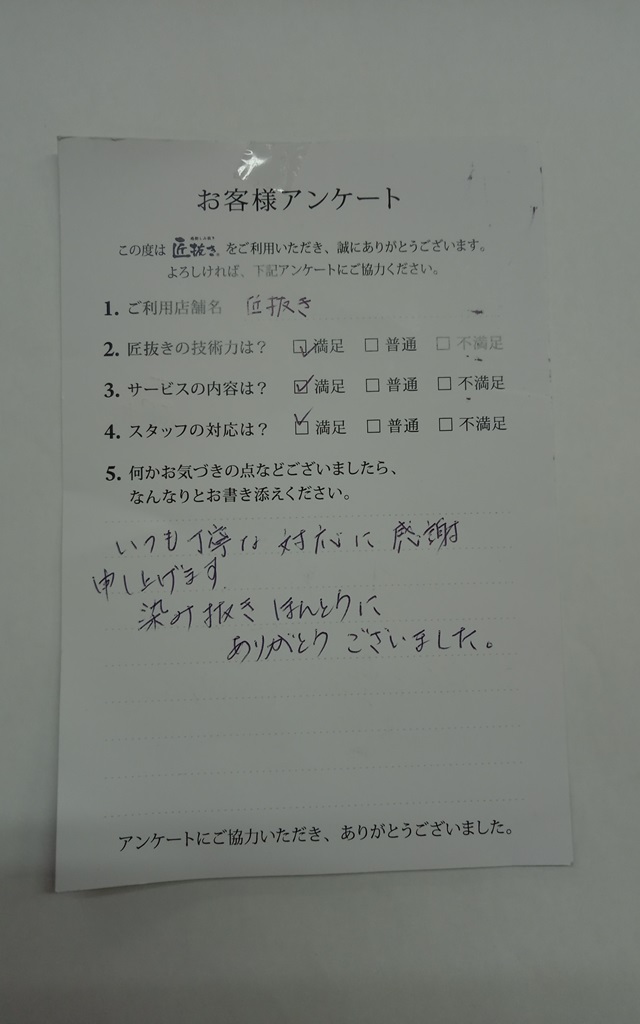 お客様アンケート
この度は 匠抜き をご利用いただき、誠にありがとうございます。
よろしければ、下記アンケートにご協力ください。
1. ご利用店舗名 匠抜き
2. 匠抜きの技術力は? ☑満足 □普通 □不満足
3. サービスの内容は? ☑満足 □普通 □不満足
4. スタッフの対応は? ☑満足 □普通 □不満足
5. 何かお気づきの点などございましたら、
なんなりとお書き添えください。
いつも丁寧な対応に感謝
申し上げます
染み抜きほんとうに
ありがとうございました。
アンケートにご協力いただき、ありがとうございました。